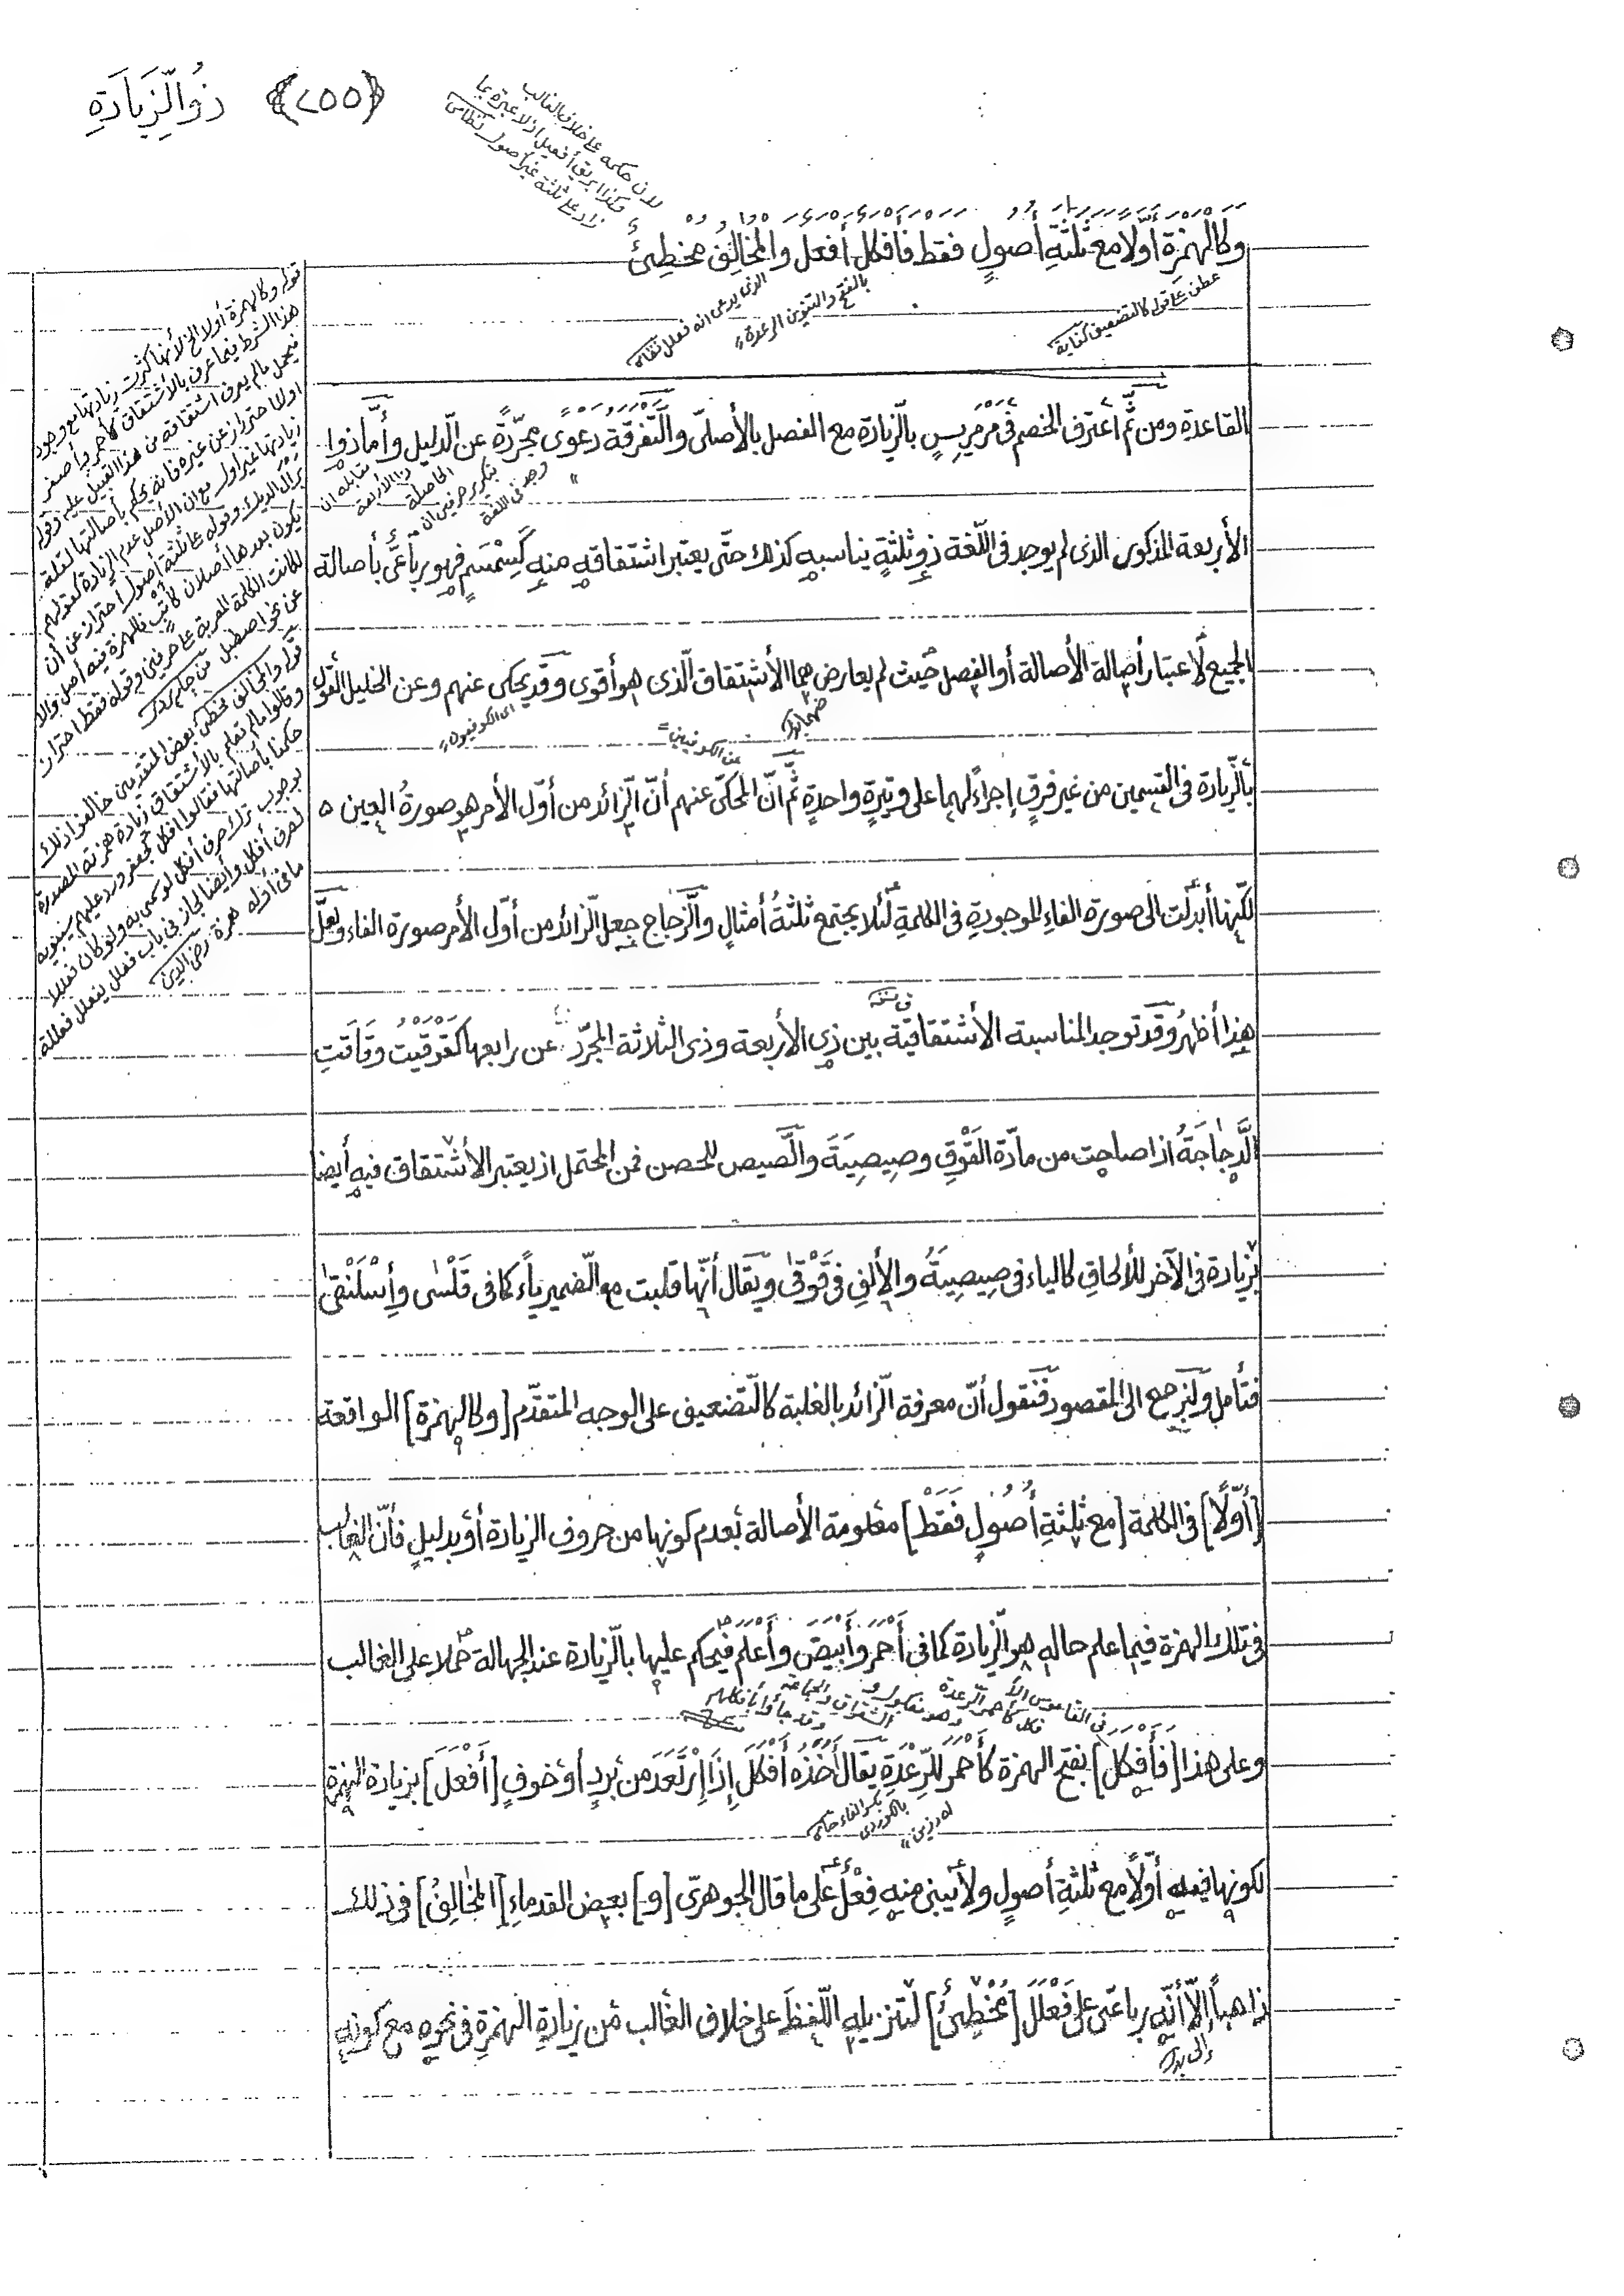 ذُو الزِّيَادَةِ ﴿٢٥٥﴾
لان حكمه على خلاف الغالب
وكذا ابريق أفعيل اذ لا عبرة بما
زاد على ثلثة غير أصول نظامى
وكالهمزة أوّلًا مع ثلثةِ أصولٍ فقط فأفكل أفعل والمخالف مخطئ
عطف على قوله كالتضعيف كفاية
بالفتح والتنوين الرعدة
الذى يدعى انه فعلل نظام
القاعدة ومن ثمّ اعترف الخصم فى مَرْمَرِيسٍ بالزّيادة مع الفصل بالأصلىّ والتّفرقة دعوى مجرّدة عن الدليل وأمّا ذو
الأربعة المذكور الذى لم يوجد فى اللّغة ذو ثلثةٍ يناسبه كذلك حتّى يعتبر اشتقاقه منه كَسِمْسَمٍ فهو رباعىّ بأصالة
الجميع لاعتبار أصالة الأصالة أو الفصل حيث لم يعارضهما الأشتقاق الّذى هو أقوى وقد يحكى عنهم وعن الخليل القول
اى الكوفيون
عن الكوفيين
بالزّيادة فى القسمين من غير فرقٍ إجراءً لهما على وتيرةٍ واحدةٍ ثمّ انّ المحكىّ عنهم أنّ الزّائد من أوّل الأمر هو صورةُ العين ٥
لكنّها أبدلت الى صورة الفاءِ الموجودةِ فى الكلمةِ لئلا يجتمع ثلثةُ أمثالٍ والزّجاج جعل الزّائد من أوّل الأمر صورة الفاء ولعلّ
فى نسخة
هذا أظهرُ وقد توجد المناسبة الأشتقاقيّة بين ذى الأربعة وذى الثلاثة المجرّد عن رابعها كقَوْقَيْتُ وقَاقَتِ
الدَّجاجَةُ اذا صاحت من مادّة القَوْقِ وصِيصِيَةَ والصّيص للحصن فمن المحتمل ان يعتبر الأشتقاق فيه أيضا
بزيادة فى الآخر للألحاقِ كالياء فى صِيصِيَةُ والألفِ فى قَوْقَىٰ ويقال أنّها قلبت مع الضمير ياءً كما فى قَلْسٰى وإسْلَنْقىٰ
فتأمل ولنرجع الى المقصود فنقول أنّ معرفة الزّائد بالغلبة كالتّضعيف على الوجه المتقدّم [وكالهمزة] الواقعة
[أوّلًا] فى الكلمة [مع ثلثةِ أُصُولٍ فَقَطْ] معلومة الأصالة بعدم كونها من حروف الزيادة أو بدليلٍ فأنّ الغالب
فى تلك الهمزة فيما علم حاله هو الزّيادة كما فى أَحْمَرَ وأَبْيَضَ وأَعْلَمَ فيحكم عليها بالزّيادة عند الجهالة حملا على الغالب
وعلى هذا [فَأَفْكَل] بفتح الهمزة كأَحْمَر للرِّعْدَةِ يقال أَخَذَهُ أَفْكَل إِذَا إِرْتَعَدَ من بردٍ أو خوفٍ [أَفْعَلَ] بزيادة الهمزة
لكونها فيه أوّلًا مع ثلثةِ أصولٍ ولا يبنى منه فِعْلٌ على ما قال الجوهرىّ [و] بعض القدماءِ [المُخٰالِفُ] فى ذلك
ذاهبًا إلّا أنّه رباعىّ على فَعْلَلَ [مُخْطِئٌ] لتنزيله اللّفظَ على خلاف الغالب من زيادةِ الهمزةِ فى نحوه مع كونه
قوله وكالهمزة أولا الخ لأنها كثرت زيادتها مع وجود
هذا الشرط فيما عرف بالأشتقاق كأحمر وأصفر
فيحمل ما لم يعرف اشتقاقه من هذا القبيل عليه وقوله
اولا احتراز عن غيره فانه يحكم بأصالتها لقلة
زيادتها غير اول مع ان الأصل عدم الزيادة كقولهم
برأل الديك وقوله مع ثلثة أصول احتراز عن أن
يكون بعدها أصلان كأتب فالهمزة فيه أصل والا
لكانت الكلمة المعربة على حرفين وقوله فقط احتراز
عن نحو اصطبل
قوله والمخالف مخطئ بعض المتقدمين خالفوا ذلك
وقالوا ما لم نعلم بالأشتقاق زيادة همزته المصدرة
حكمنا بأصالتها فقالوا أفكل كجعفر ورد عليهم سيبويه
بوجوب ترك صرف أفكل لو سمى به ولو كان فعللا
لصرف أفكل وأيضا لجاز فى باب فعلل يفعلل فعللة
ما فى أوله همزة رضى الدين